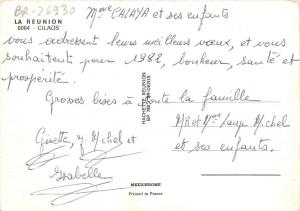 BR-26930
LA REUNION
6064 - CILAOS
Mme CALAYA et ses enfants
vous adressent leurs meilleurs vœux, et vous
souhaitent pour 1982, bonheur, santé et
prospérité.
Grosses bises à toute la famille
Ginette, J. Michel et
Isabelle
Mr et Mme Jean Michel
et ses enfants.
HACHETTE REUNION
ST-DENIS
MEXICHROME
Printed in France